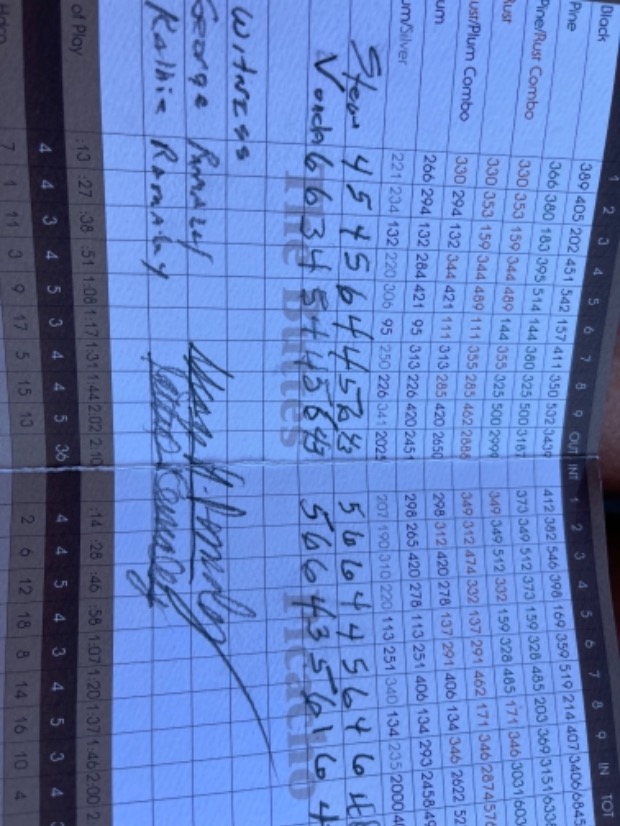 1 2 3 4 5 6 7 8 9 OUT INT 1 2 3 4 5 6 7 8 9 IN TOT
Black 389 405 202 451 542 157 411 350 532 3439 412 382 546 398 169 359 519 214 407 3406 6845
Pine 366 380 183 395 514 144 380 325 500 3187 373 349 512 373 159 328 485 203 369 3151
Pine/Rust Combo 330 353 159 344 489 144 355 325 500 2999 349 349 512 332 159 328 485 171 346 3031
Rust 330 353 159 344 489 111 355 285 462 2888 349 312 474 332 137 291 462 171 346 2874
ust/Plum Combo 330 294 132 344 421 111 313 285 420 2650 298 312 420 278 137 291 406 134 346 2622
um 266 294 132 284 421 95 313 226 420 2451 298 265 420 278 113 251 406 134 293 2458
um/Silver 221 234 132 220 306 95 250 226 341 2025 207 190 310 220 113 251 340 134 235 2000
4 5 4 5 6 4 4 5 6 43 5 6 6 4 4 5 6 4 6
6 6 3 4 5 4 4 5 6 43 5 6 6 4 3 5 6 1 6
The Buttes Picacho
WITNESS
George Ramsley
Kathie Ramsley
of Play :13 :27 :38 :51 1:08 1:17 1:31 1:44 2:02 2:10 :14 :28 :46 :58 1:07 1:20 1:37 1:46 2:00
4 4 3 4 5 3 4 4 5 36 4 4 5 4 3 4 5 3 4
7 1 11 3 9 17 5 15 13 2 6 12 18 8 14 16 10 4